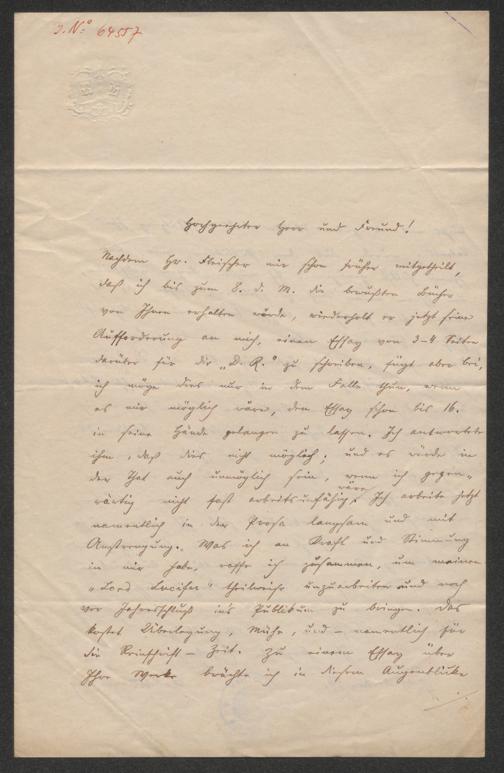 J. N.º 64557
Hochgeehrter Herr und Freund!
Nachdem Hr. Fleischer mir schon früher mitgetheilt,
daß ich bis zum 8. d. M. die bewußten Bücher
von Ihnen erhalten würde, wiederholt er jetzt seine
Aufforderung an mich, einen Essay von 3-4 Seiten
darüber für die „D. R." zu schreiben, fügt aber bei,
ich möge dies nur in dem Falle thun, wenn
es mir möglich wäre, den Essay schon bis 16.
in seine Hände gelangen zu lassen. Ich antwortete
ihm, daß dies nicht möglich; und es würde in
der That auch unmöglich sein, wenn ich gegen-
wärtig nicht fast arbeitsunfähig wäre. Ich arbeite jetzt
namentlich in der Prosa langsam und mit
Anstrengung. Was ich an Kraft und Stimmung
in mir habe, raffe ich zusammen, um meinen
„Lord Lucifer" theilweise umzuarbeiten und noch
vor Jahresschluß in's Publikum zu bringen. Das
kostet Überlegung, Mühe, und – namentlich für
die Reinschrift – Zeit. Zu einem Essay über
Ihre Werke brächte ich in diesem Augenblicke